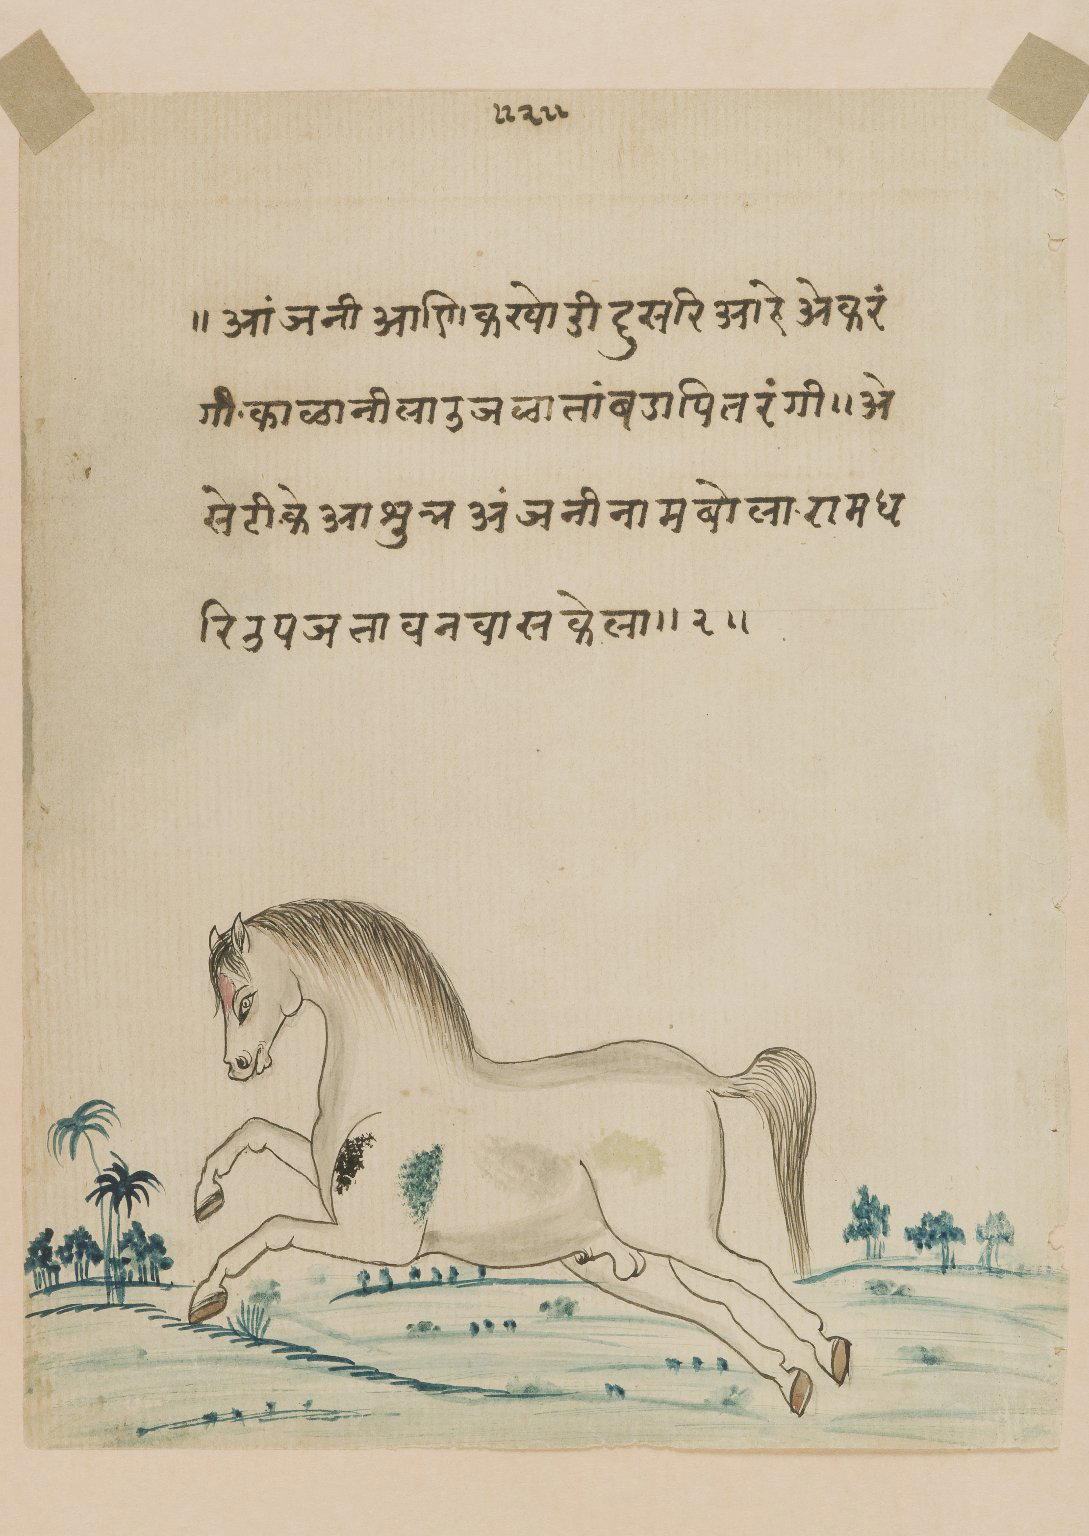 ॥२॥
॥ आंजनी आणि करखोडी दुसरि आहे अेकरं
गी काळा नीला उजळा तांबडा पित रंगी ॥ अे
से टीके आश्रुत्र अंजनी नाम बोला राम ध
रि उपजता वनवास केला ॥ २ ॥